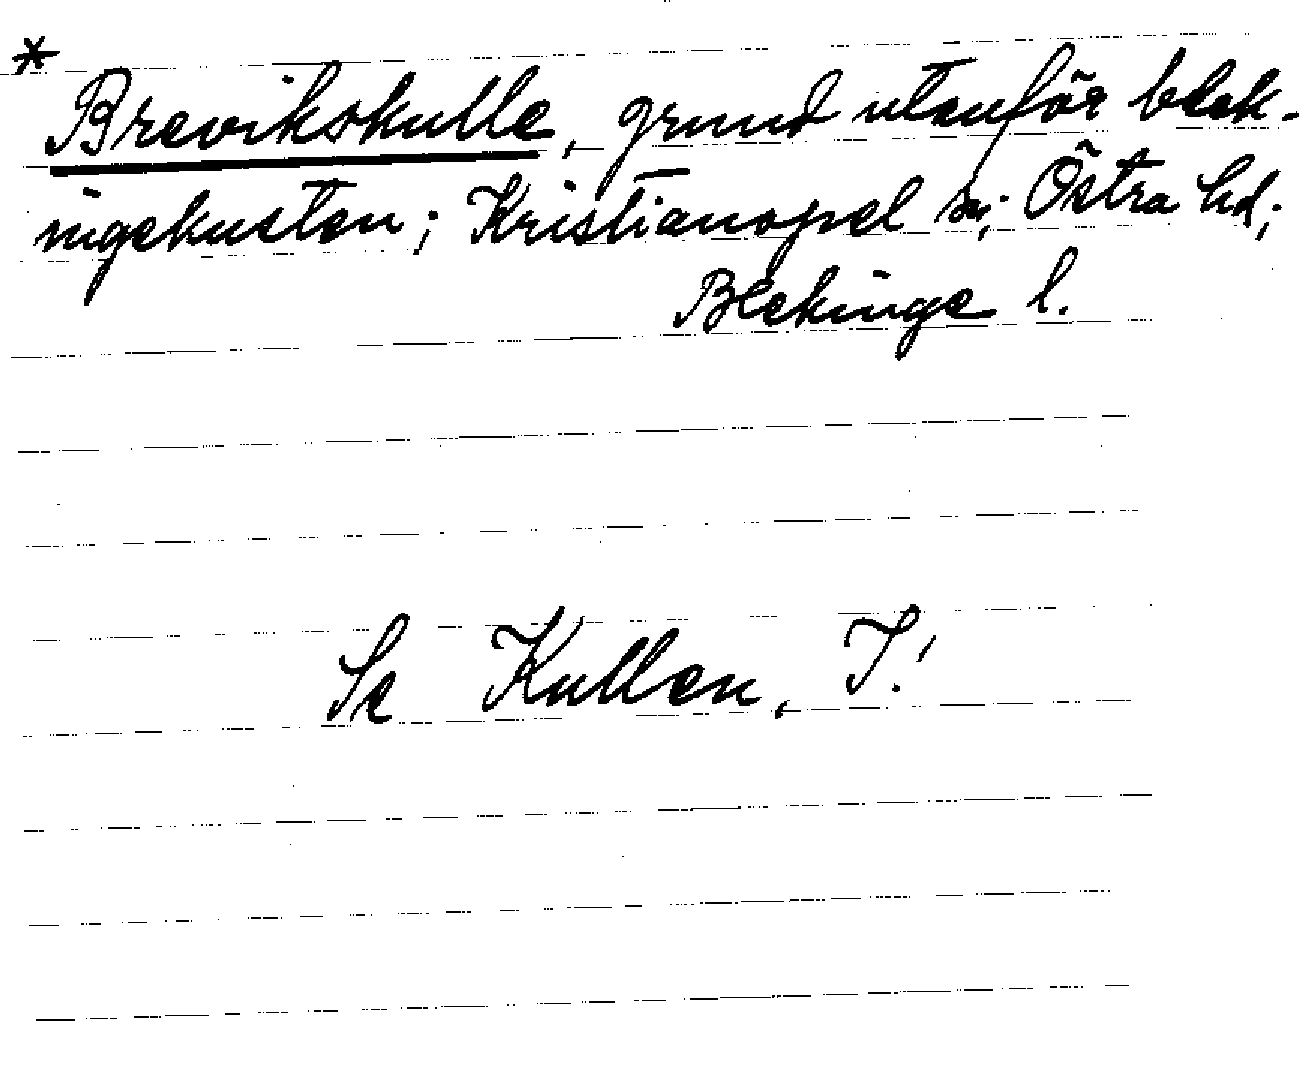 * Brevikskulle, grund utanför blek-
ingekusten; Kristianopel sn; Östra hd;
Blekinge l.
Se Kullen, T.!